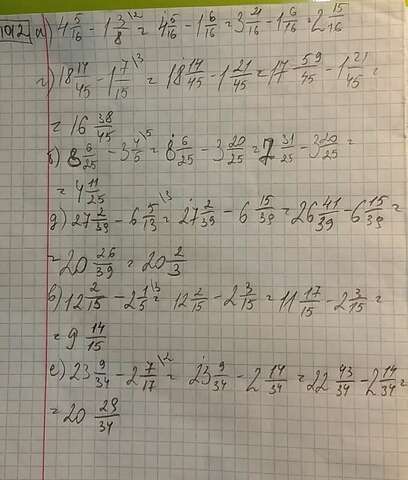 1012 а) 4 5/16 - 1 3/8 \2 = 4 5/16 - 1 6/16 = 3 21/16 - 1 6/16 = 2 15/16
г) 18 14/45 - 1 7/15 \3 = 18 14/45 - 1 21/45 = 17 59/45 - 1 21/45 =
= 16 38/45
б) 8 6/25 - 3 4/5 \5 = 8 6/25 - 3 20/25 = 7 31/25 - 3 20/25 =
= 4 11/25
д) 27 2/39 - 6 5/13 \3 = 27 2/39 - 6 15/39 = 26 41/39 - 6 15/39 =
= 20 26/39 = 20 2/3
в) 12 2/15 - 2 1/5 \3 = 12 2/15 - 2 3/15 = 11 17/15 - 2 3/15 =
= 9 14/15
е) 23 9/34 - 2 7/17 \2 = 23 9/34 - 2 14/34 = 22 43/34 - 2 14/34 =
= 20 29/34